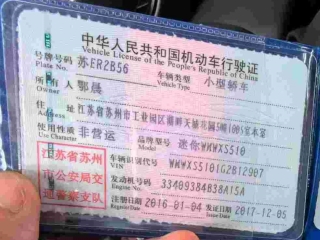 中华人民共和国机动车行驶证
Vehicle License of the People's Republic of China
号牌号码 苏ER2B56 车辆类型 小型轿车
Plate No. Vehicle Type
所有人 鄂晨
Owner
住址 江苏省苏州市工业园区
Address
使用性质 非营运 品牌型号 迷你WMWXS510
Use Character Model
江苏省苏州
市公安局交
通警察支队
车辆识别代号 WMWXS5101G2B12907
VIN
发动机号码 33409384B38A15A
Engine No.
注册日期 2016-01-04 发证日期 2017-12-05
Register Date Issue Date